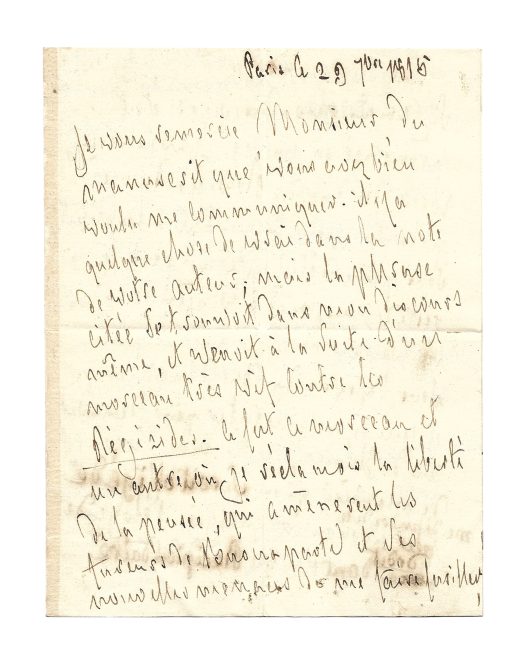 Paris le 29 7bre 1815
Je vous remercie Monsieur du
manuscrit que vous avez bien
voulu me communiquer. il y a
quelque chose de vrai dans la note
de votre auteur, mais la phrase
citée se trouvoit dans mon discours
même, et venoit à la suite d'un
morceau très vif contre les
Régicides. ce fut ce morceau et
un autre où je réclamois la liberté
de la pensée, qui amenèrent les
fureurs de Buonaparte et ses
nouvelles menaces de me faire fusiller,